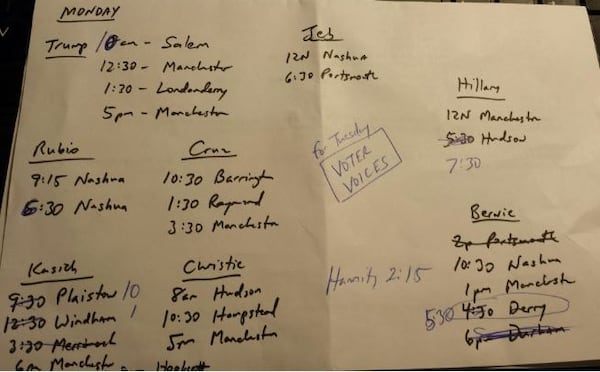 MONDAY
Trump 10am - Salem
12:30 - Manchester
1:30 - Londonderry
5pm - Manchester
Jeb
12N Nashua
6:30 Portsmouth
Hillary
12N Manchester
5:30 Hudson
7:30
for Tuesday
VOTER
VOICES
Rubio
9:15 Nashua
6:30 Nashua
Cruz
10:30 Barrington
1:30 Raymond
3:30 Manchester
Bernie
2p Portsmouth
10:30 Nashua
1pm Manchester
530 4:30 Derry
6p Durham
Hannity 2:15
Kasich
9:30 Plaistow 10
12:30 Windham 1
3:30 Merrimack
6pm Manchester
Christie
8am Hudson
10:30 Hampstead
5pm Manchester
Hooksett